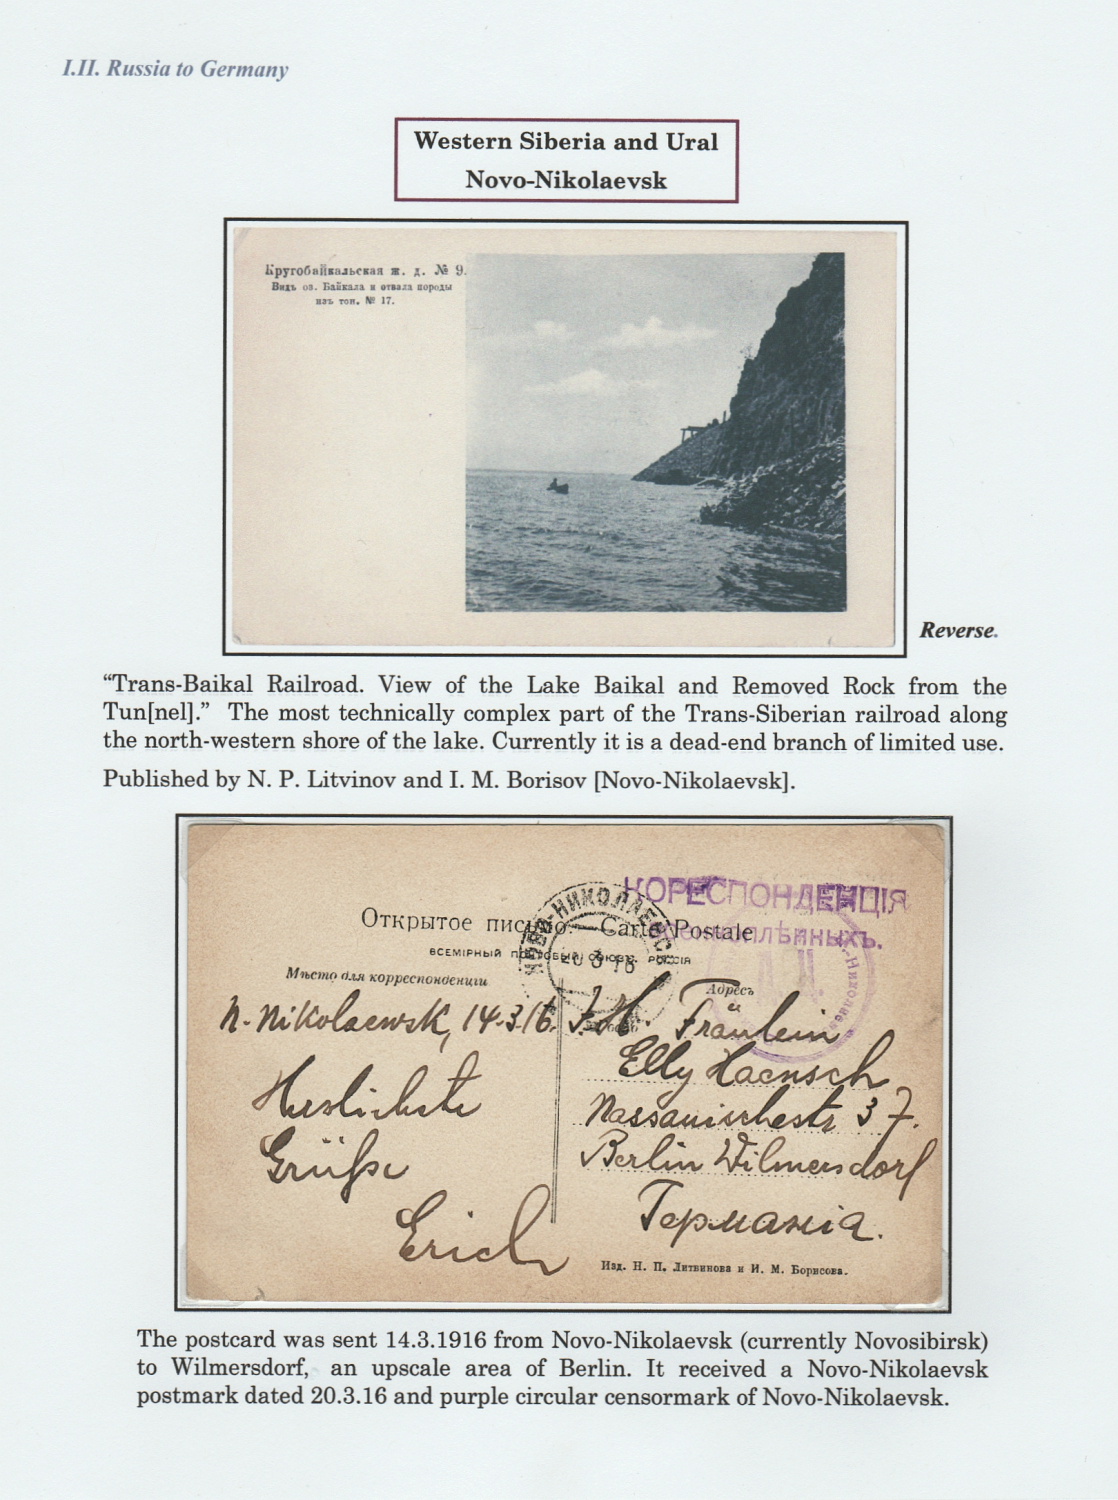 I.II. Russia to Germany
Western Siberia and Ural
Novo-Nikolaevsk
Кругобайкальская ж. д. № 9.
Видъ оз. Байкала и отвала породы
изъ тон. № 17.
Reverse.
“Trans-Baikal Railroad. View of the Lake Baikal and Removed Rock from the
Tun[nel].” The most technically complex part of the Trans-Siberian railroad along
the north-western shore of the lake. Currently it is a dead-end branch of limited use.
Published by N. P. Litvinov and I. M. Borisov [Novo-Nikolaevsk].
КОРЕСПОНДЕНЦІЯ
ВОЕННОПЛѢННЫХЪ.
НОВО-НИКОЛАЕВСК
20 3 16
Открытое письмо. — Carte Postale
ВСЕМІРНЫЙ ПОЧТОВЫЙ СОЮЗЪ. РОССІЯ
Мѣсто для корреспонденціи
Адресъ
N. Nikolaewsk, 14.3.16.
Herzlichste
Grüße
Erich
Fräulein
Elly Haensch
Nassauischestr 37.
Berlin Wilmersdorf
Германія.
Изд. Н. П. Литвинова и И. М. Борисова.
The postcard was sent 14.3.1916 from Novo-Nikolaevsk (currently Novosibirsk)
to Wilmersdorf, an upscale area of Berlin. It received a Novo-Nikolaevsk
postmark dated 20.3.16 and purple circular censormark of Novo-Nikolaevsk.